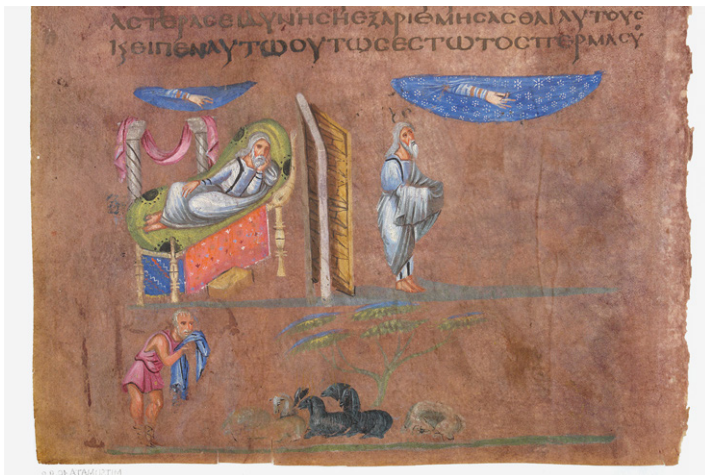 ΑCΤΕΡΑCΕΙΔΥΝΗCΗΕΞΑΡΙΘΜΗCΑCΘΑΙΑΥΤΟΥC
ΚΕΙΠΕΝΑΥΤΩΟΥΤΩCΕCΤΩΤΟCΠΕΡΜΑCΥ